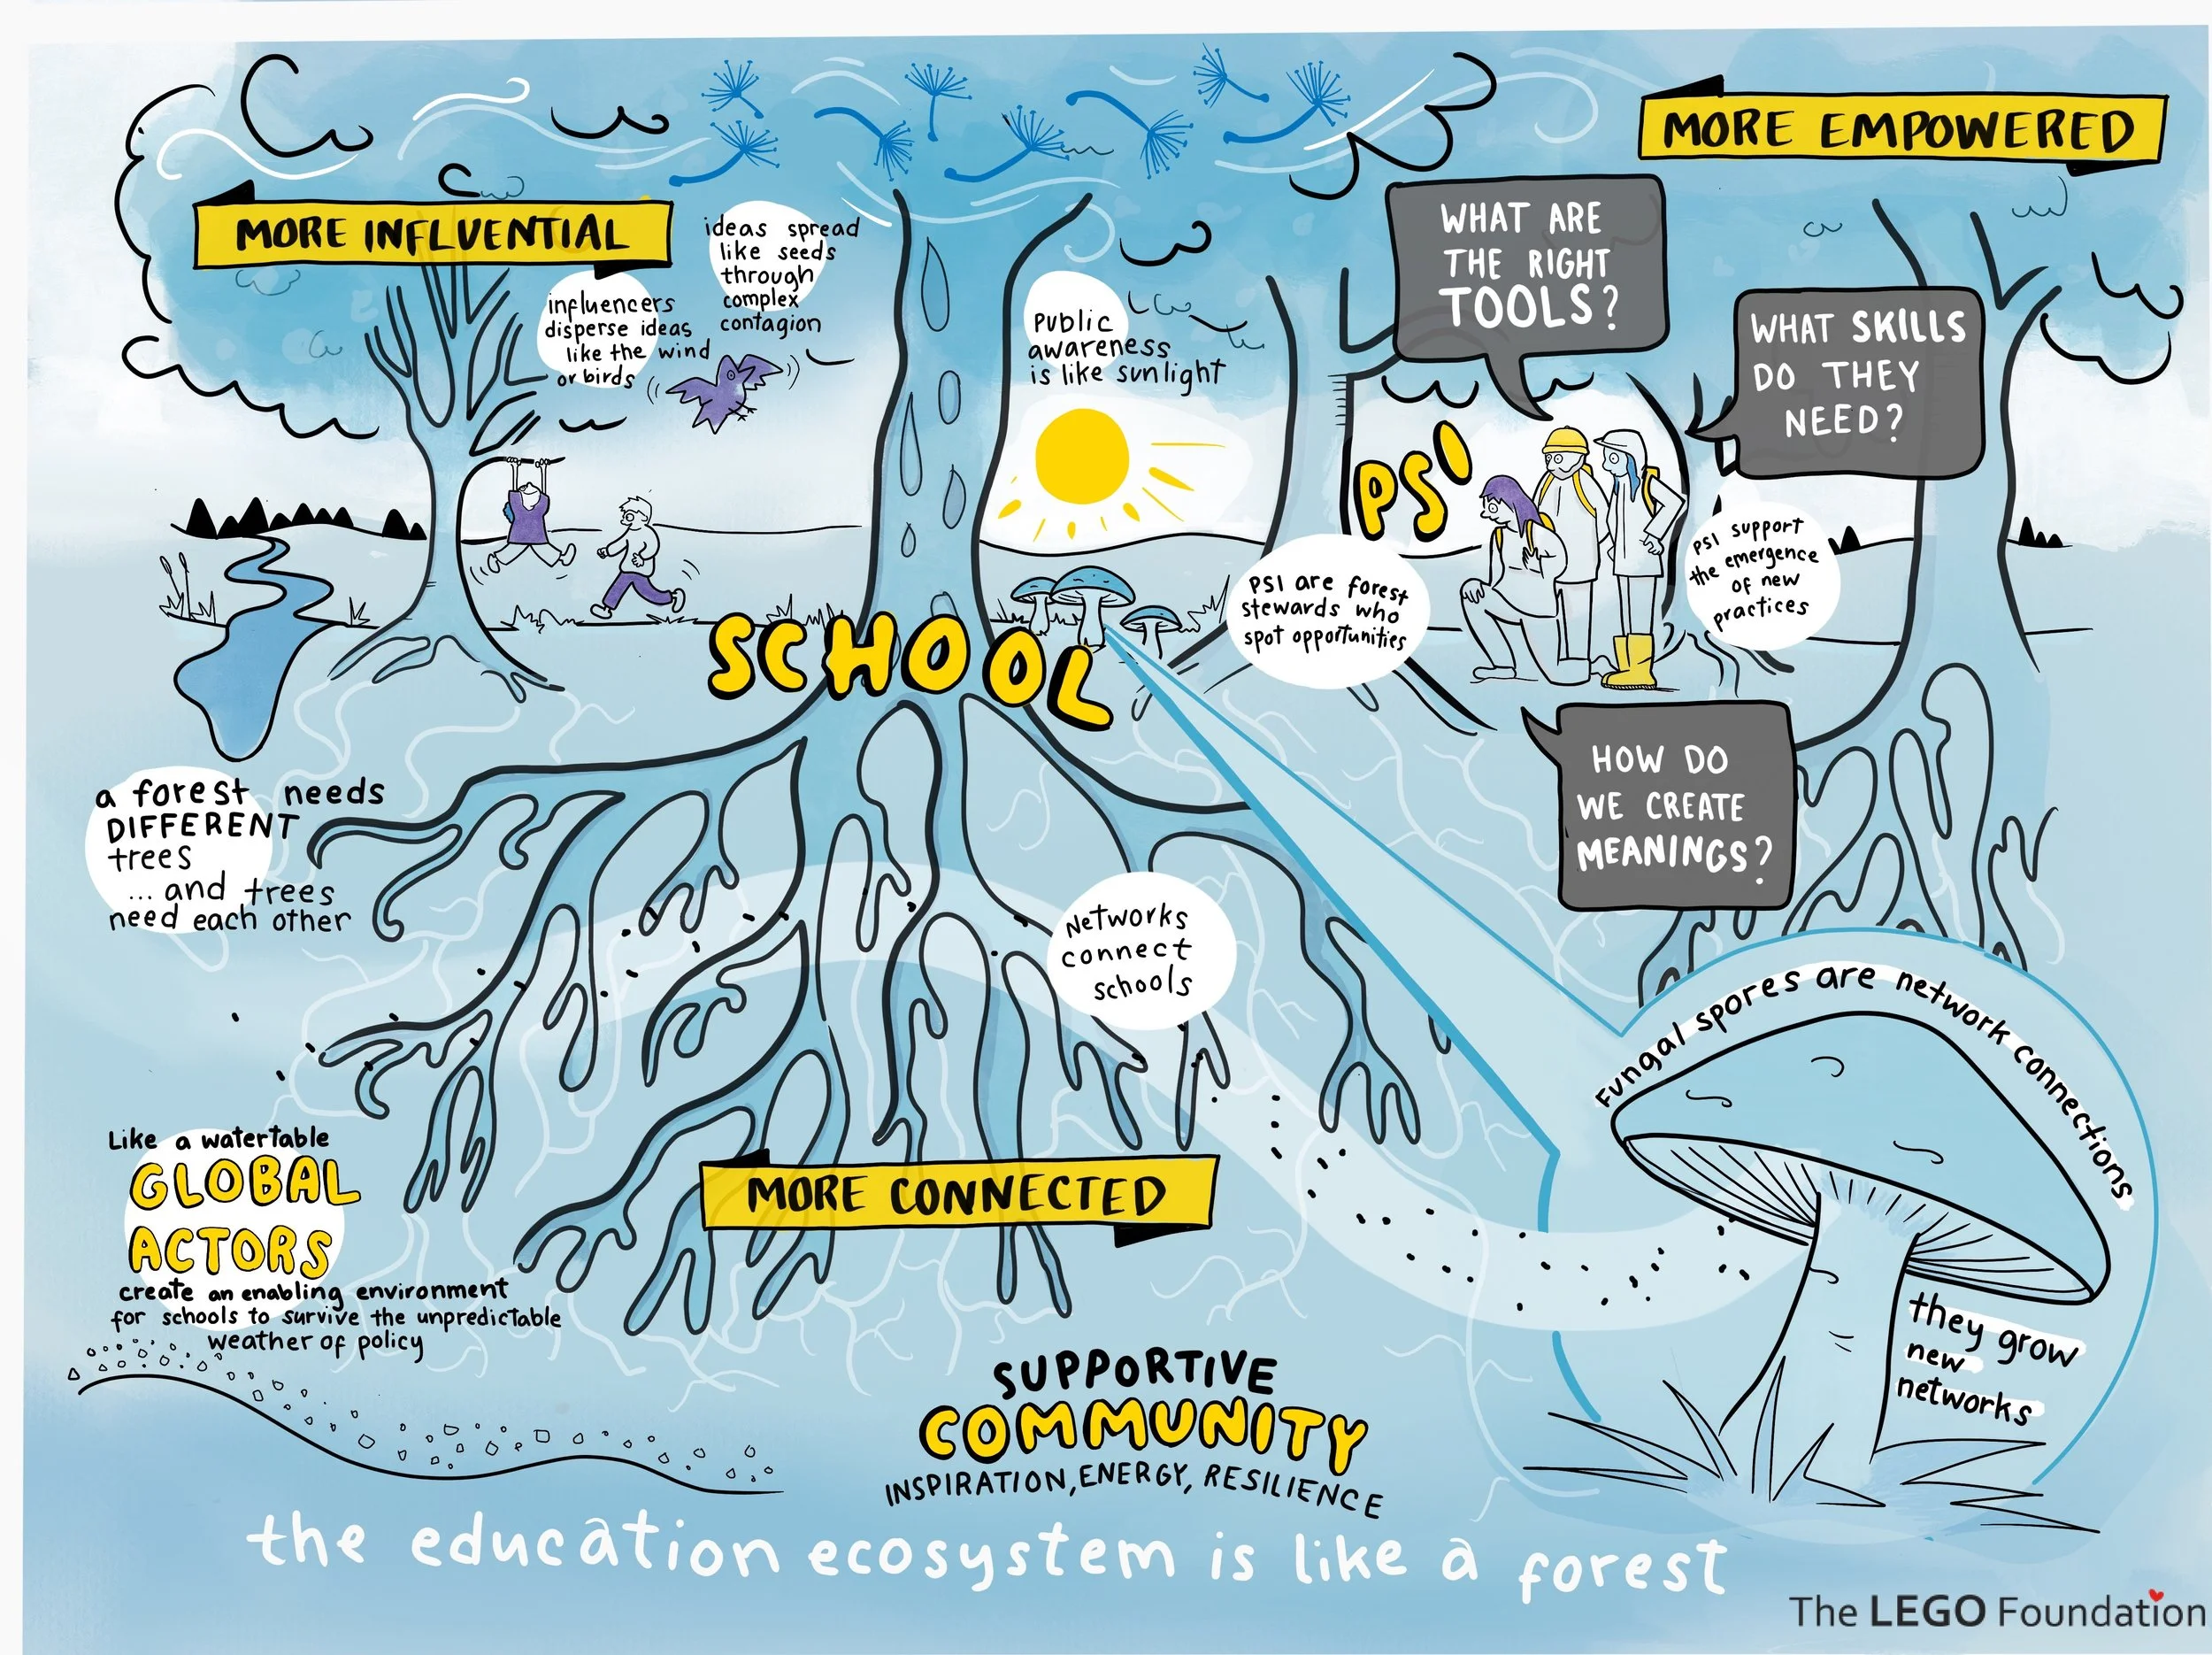 MORE INFLUENTIAL
ideas spread
like seeds
through
complex
contagion
influencers
disperse ideas
like the wind
or birds
PUBLIC
awareness
is like sunlight
MORE EMPOWERED
WHAT ARE
THE RIGHT
TOOLS?
WHAT SKILLS
DO THEY
NEED?
PSI
PSI are forest
stewards who
spot opportunities
PSI support
the emergence
of new
practices
HOW DO
WE CREATE
MEANINGS?
SCHOOL
a forest needs
DIFFERENT
trees
... and trees
need each other
Networks
connect
schools
Fungal spores are network connections
they grow
new
networks
Like a watertable
GLOBAL
ACTORS
create an enabling environment
for schools to survive the unpredictable
weather of policy
MORE CONNECTED
SUPPORTIVE
COMMUNITY
INSPIRATION, ENERGY, RESILIENCE
the education ecosystem is like a forest
The LEGO Foundation